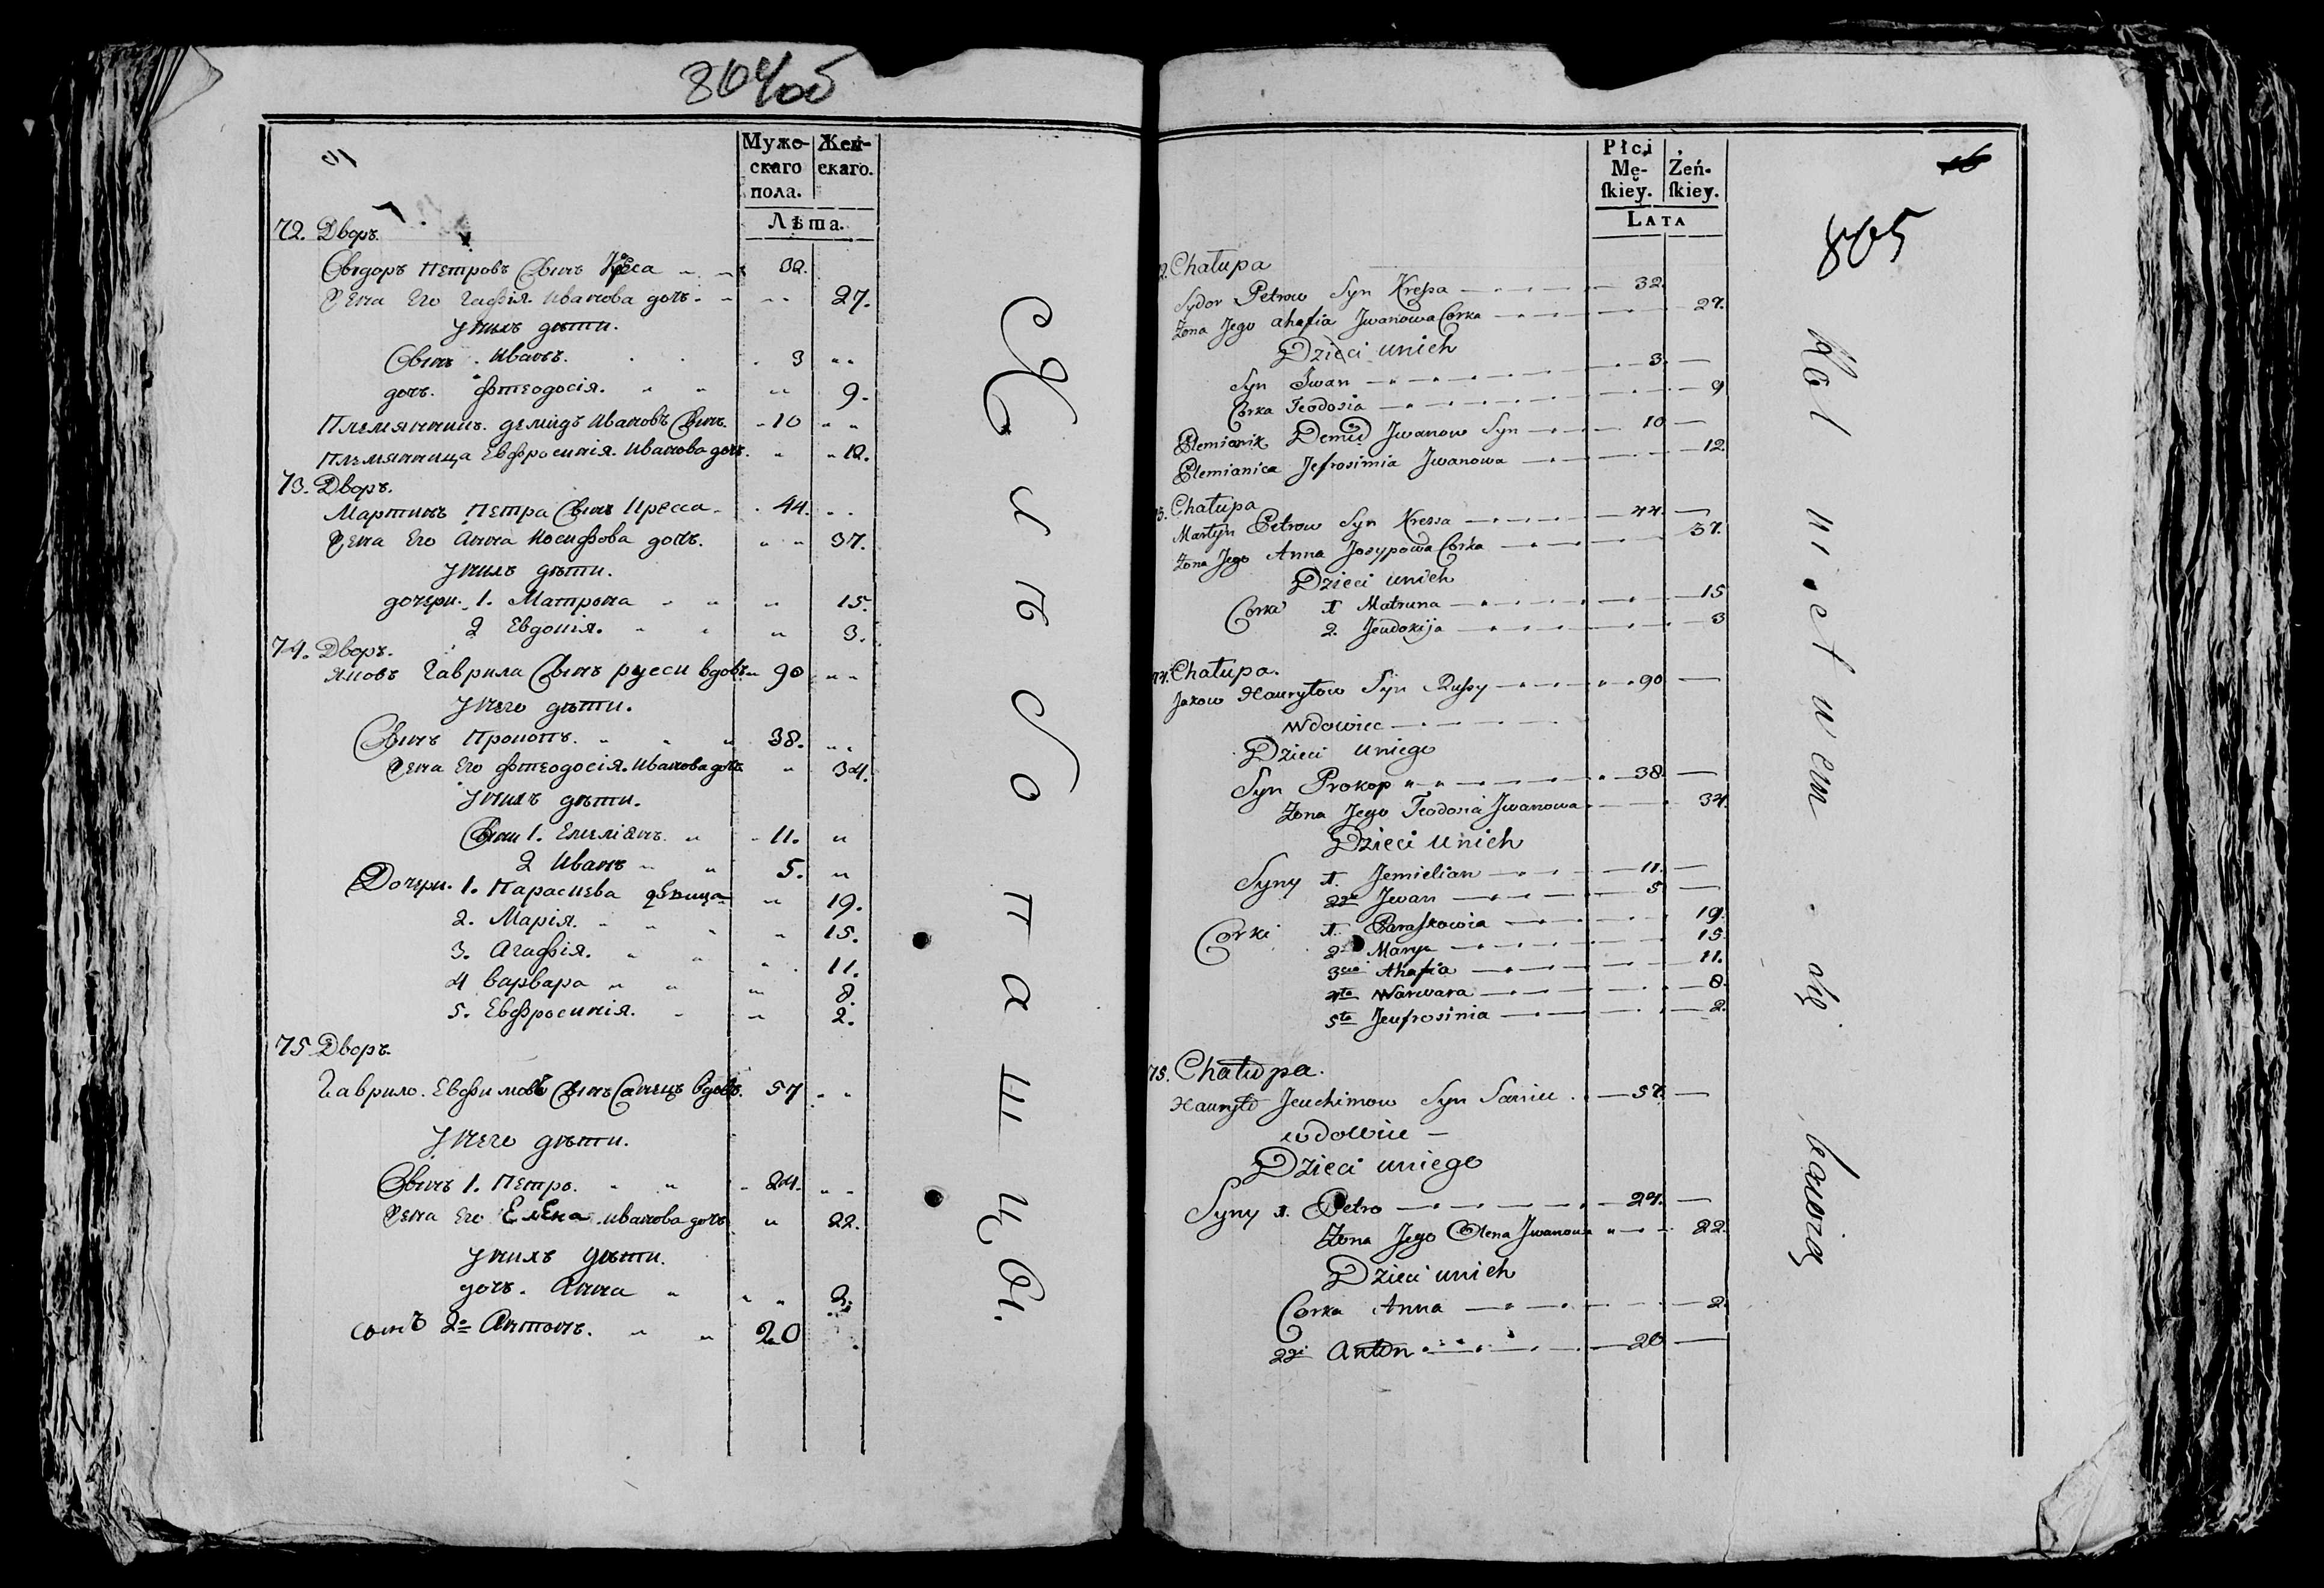 804об
Мужо-
скаго
пола.
Жен-
скаго.
Лѣта.
72. Дворъ.
Сидоръ Петровъ Сынъ Креса 32.
Жена Его Гафія Иванова дочь. 27.
У нихъ дѣти.
Сынъ. Иванъ. 3
дочь. Фтеодосія. 9.
Племянникъ. демидъ Ивановъ Сынъ. 10
Племянница Евфросинія. Иванова дочь. 12.
73. Дворъ.
Мартинъ Петра Сынъ Кресса. 44.
Жена Его Анна Иосифова дочь. 37.
У нихъ дѣти.
дочери. 1. Матрона 15.
2 Евдокія. 3.
74. Дворъ.
Яковъ Гаврила Сынъ русси вдовъ 90
У него дѣти.
Сынъ Прокопъ. 38.
Жена Его Фтеодосія. Иванова дочь 34.
У нихъ дѣти.
Сыни 1. Емиліанъ. 11.
2 Иванъ 5.
Дочери. 1. Параскева дѣвица 19.
2. Марія. 15.
3. Агафія. 11.
4 Варвара 8.
5. Евфросинія. 2.
75 Дворъ.
Гаврило. Евфимовъ Сынъ вдовъ. 57
У него дѣти.
Сынъ 1. Петръ. 24.
Жена Его Елена Иванова дочь 22.
У нихъ дѣти.
дочь. Анна 2.
сынъ 2й Антонъ. 20
Płci
Mę-
ſkiey.
Żeń-
ſkiey.
LATA
16
805
Chałupa
Sydor Petrow Syn Kreſsa 32.
Żona Jego Ahafia Jwanowa Corka 27.
Dzieci unich
Syn Jwan 3.
Corka Teodosia 9
Plemianik Demid Jwanow Syn 10
Plemianica Jefrosimia Jwanowa 12.
Chałupa
Martyn Petrow Syn Kressa 44.
Żona Jego Anna Josypowa Corka 37.
Dzieci unich
Corka 1 Matruna 15
2. Jeudokija 3
Chałupa.
Jakow Hauryłow Syn Ruſsy 90
Wdowiec
Dzieci uniego
Syn Prokop 38.
Żona Jego Teodosia Jwanowa 34.
Dzieci unich
Syny 1. Jemielian 11.
2gi Jwan 5
Corki 1. Paraſkowia 19.
2 Marya 15.
3cia Ahafia 11.
4ta Warwara 8.
5ta Jeufrosinia 2.
75. Chałupa.
Hauryło Jeuchimow Syn 57.
wdowiec
Dzieci uniego
Syny 1. Petro 24.
Żona Jego Olena Jwanowa 22.
Dzieci unich
Corka Anna 2.
2gi Anton 20